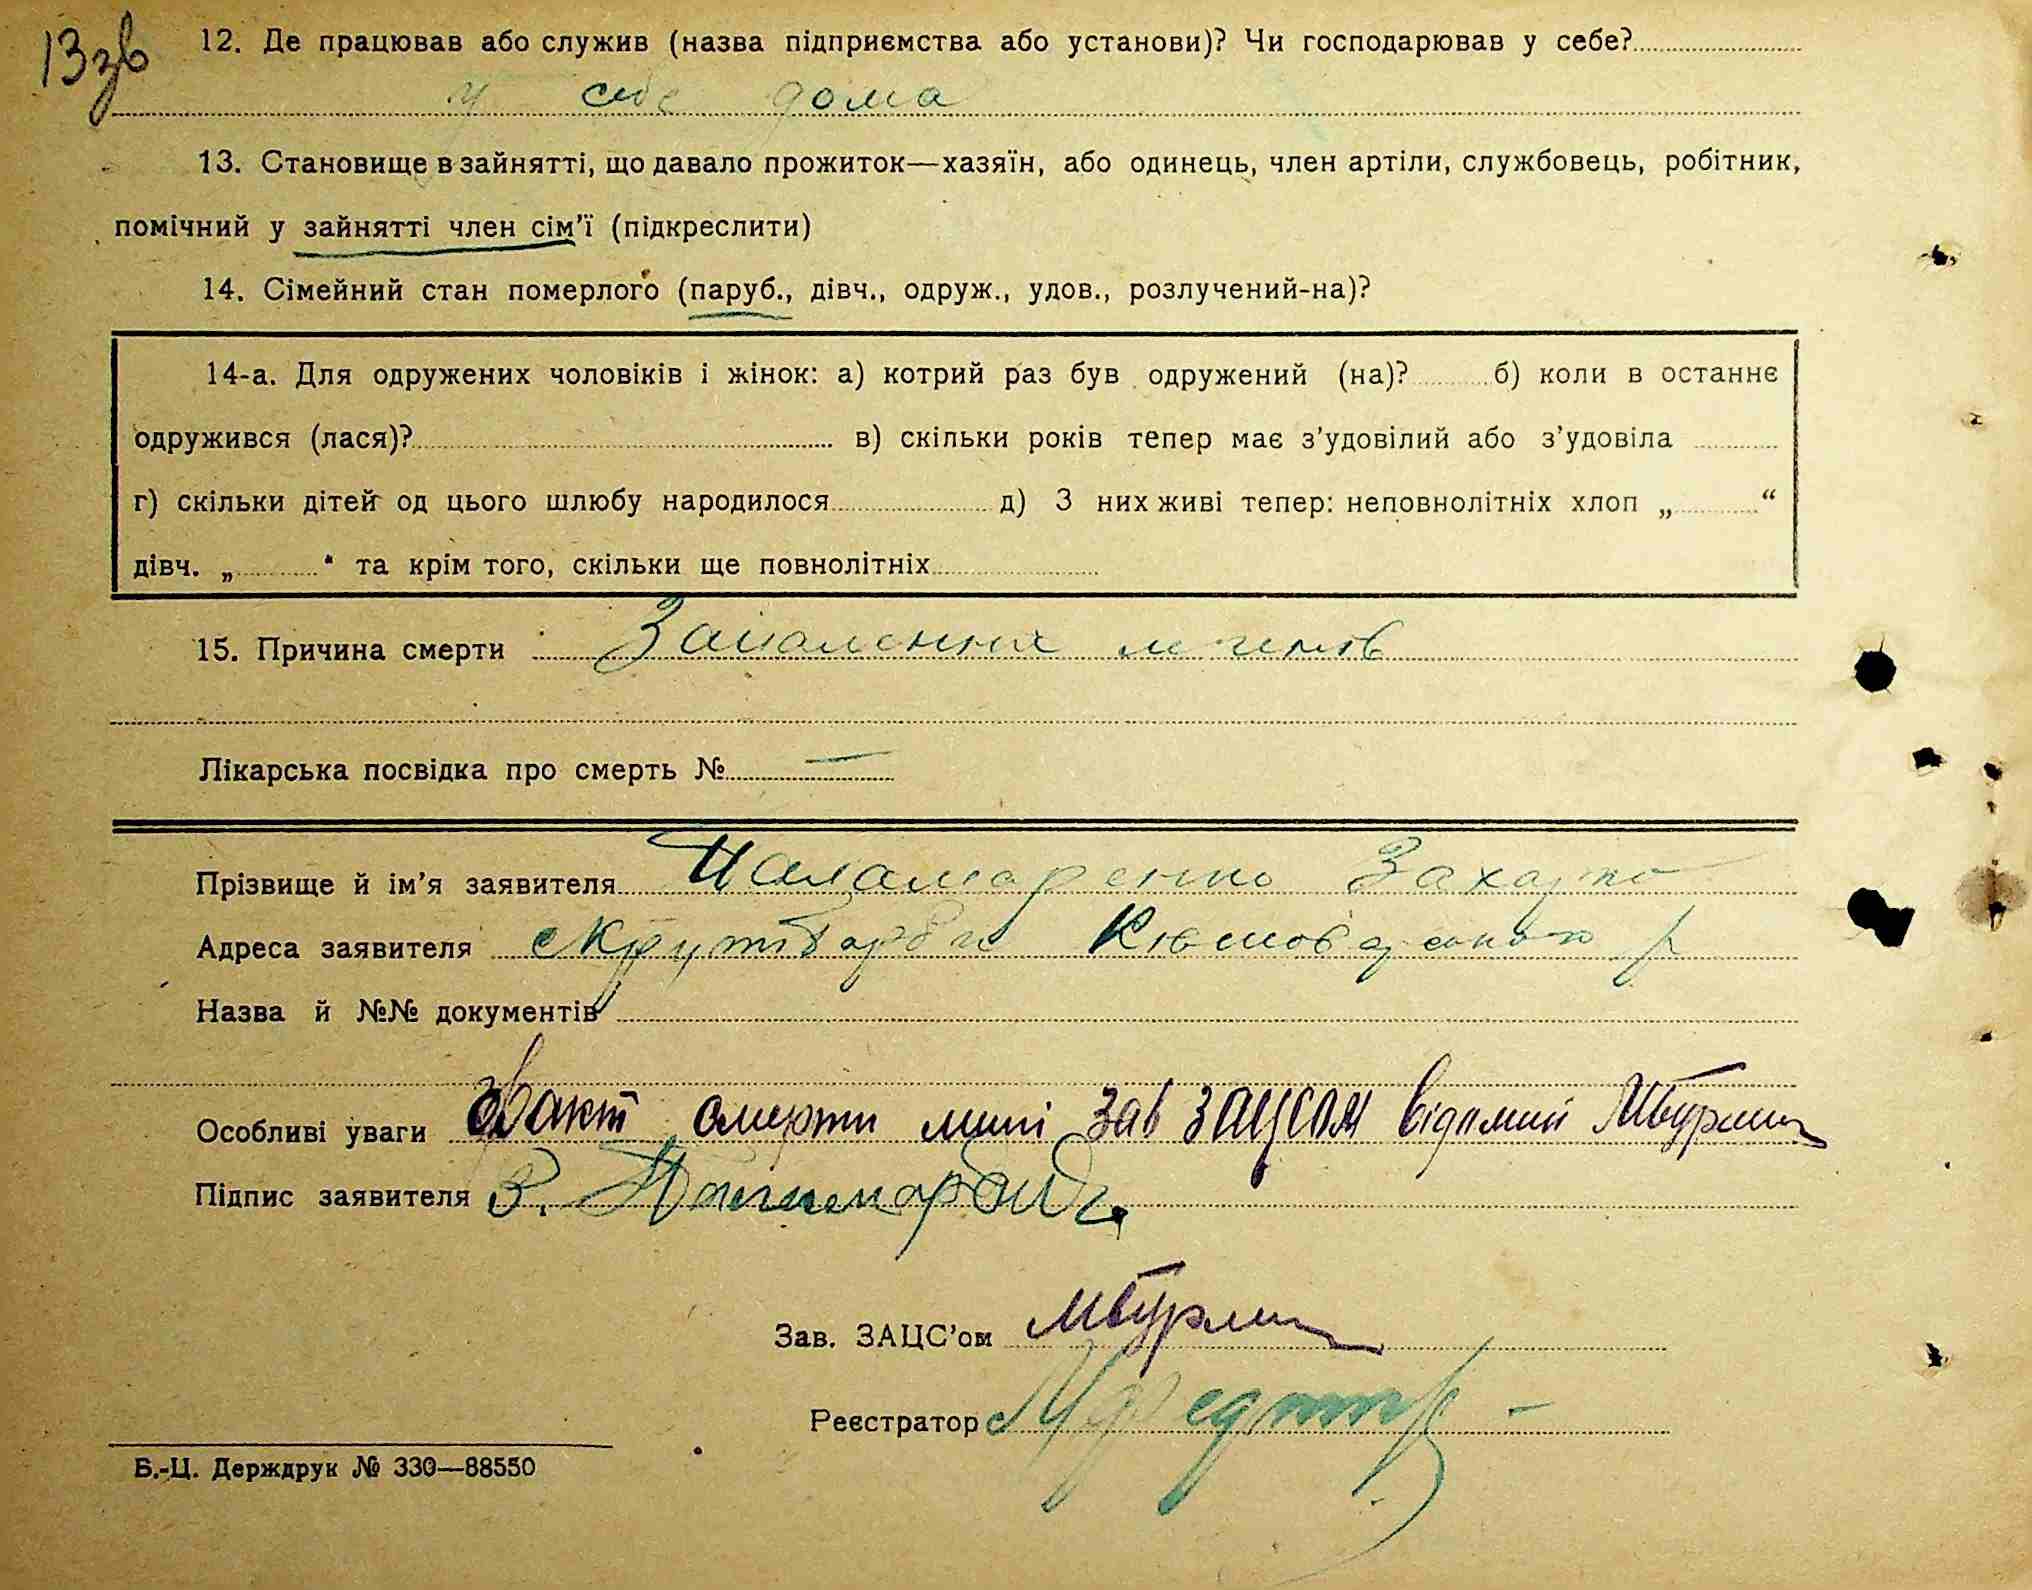 13 зв
12. Де працював або служив (назва підприємства або установи)? Чи господарював у себе?
у себе дома
13. Становище в зайнятті, що давало прожиток—хазяїн, або одинець, член артіли, службовець, робітник,
помічний у зайнятті член сім'ї (підкреслити)
14. Сімейний стан померлого (паруб., дівч., одруж., удов., розлучений-на)?
14-а. Для одружених чоловіків і жінок: а) котрий раз був одружений (на)? б) коли в останнє
одружився (лася)? в) скільки років тепер має з'удовілий або з'удовіла
г) скільки дітей од цього шлюбу народилося д) З них живі тепер: неповнолітніх хлоп „ “
дівч. „ “ та крім того, скільки ще повнолітніх
15. Причина смерти Запалення
Лікарська посвідка про смерть № —
Прізвище й ім'я заявителя Паламаренко Захарко
Адреса заявителя
Назва й №№ документів
Особливі уваги факт смерти мині Зав ЗАЦСом відомий
Підпис заявителя З.
Зав. ЗАЦС'ом
Реєстратор
Б.-Ц. Держдрук № 330—88550